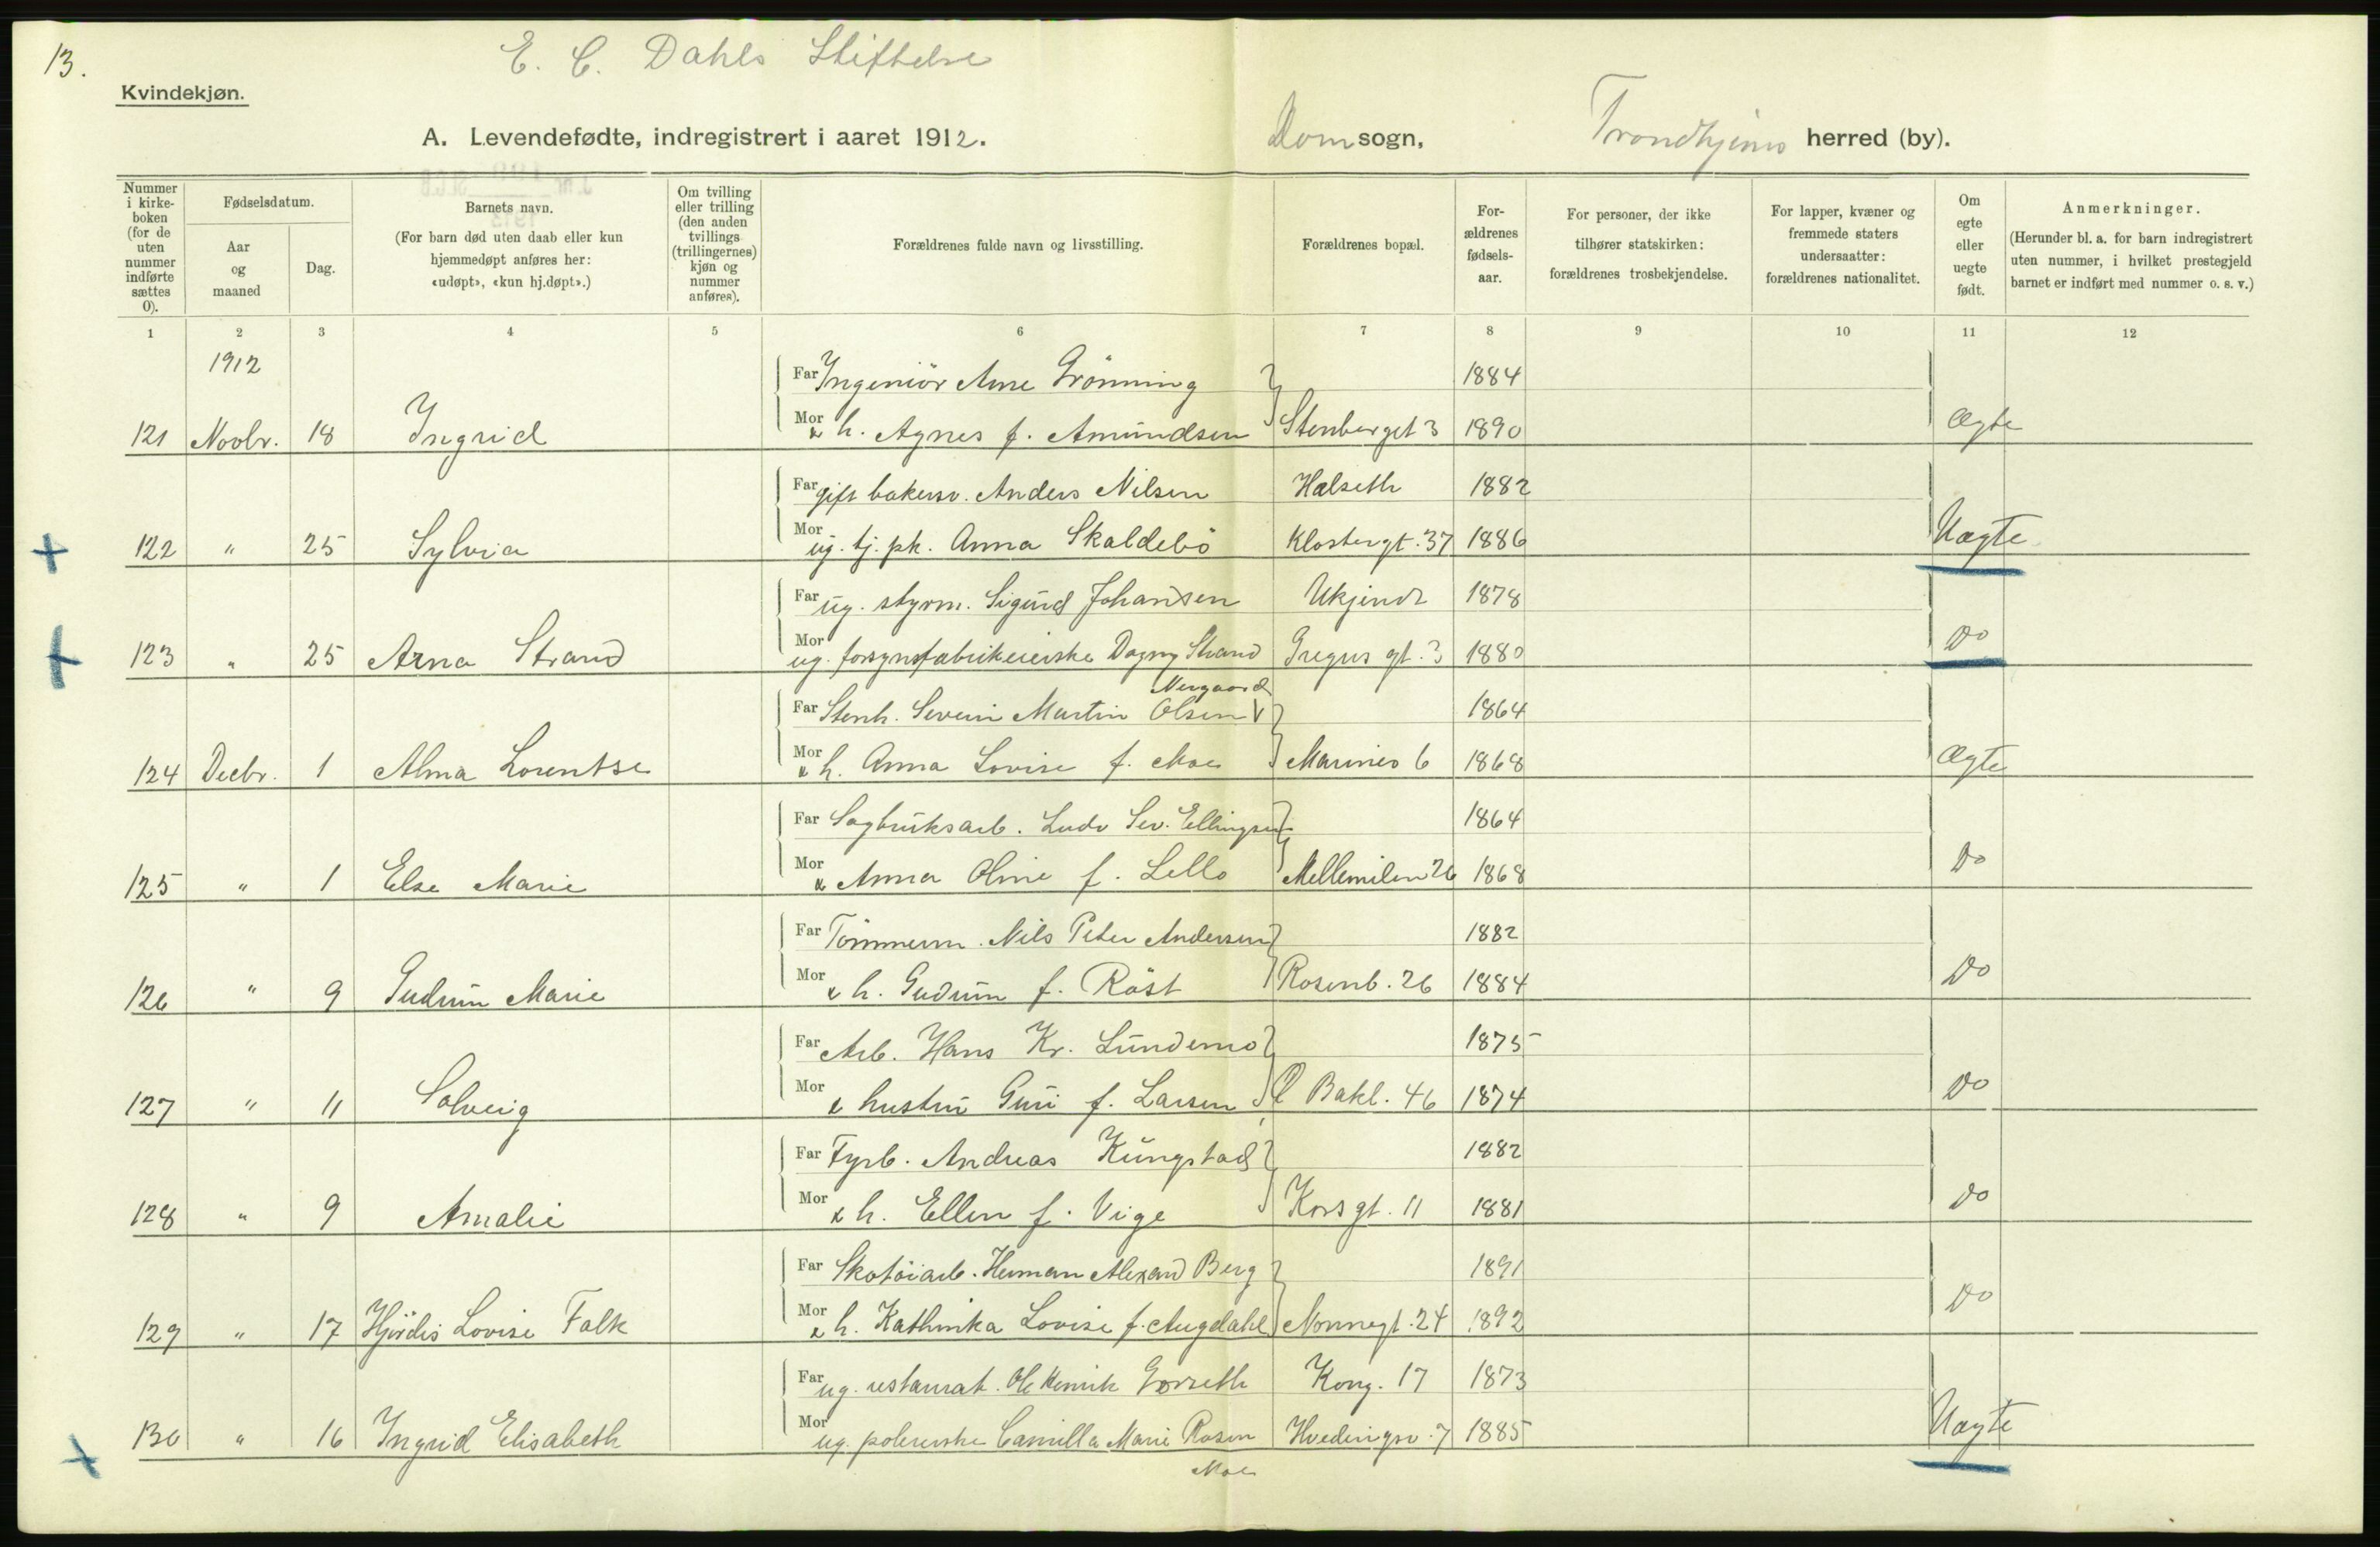 13.
E. C. Dahls Stiftelse
Kvindekjøn.
A. Levendefødte, indregistrert i aaret 1912.
Dom sogn,
Trondhjems herred (by).
Nummer i kirkeboken (for de uten nummer indførte sættes 0).
Fødselsdatum.
Aar og maaned
Dag.
Barnets navn.
(For barn død uten daab eller kun hjemmedøpt anføres her: «udøpt», «kun hj.døpt».)
Om tvilling eller trilling (den anden tvillings (trillingernes) kjøn og nummer anføres).
Forældrenes fulde navn og livsstilling.
Forældrenes bopæl.
For-ældrenes fødsels-aar.
For personer, der ikke tilhører statskirken: forældrenes trosbekjendelse.
For lapper, kvæner og fremmede staters undersaatter: forældrenes nationalitet.
Om egte eller uegte født.
Anmerkninger.
(Herunder bl. a. for barn indregistrert uten nummer, i hvilket prestegjeld barnet er indført med nummer o. s. v.)
1 2 3 4 5 6 7 8 9 10 11 12
1912
Far Ingeniör Arne Grönning 1884
121 Novbr. 18 Ingrid Mor & h. Agnes f. Amundsen Stenberget 3 1890 Ægte
Far gift bakersv. Anders Nilsen Halseth 1882
122 " 25 Sylvia Mor ug. tj. pk. Anna Skaldebö Klostergt. 37 1886 Uægte
Far ug. styrm. Sigurd Johansen Ukjendt 1878
123 " 25 Arna Strand Mor ug. forsynsfabrikeierske Dagny Strand Gregus gt. 3 1880 Do
Nergaard
Far Stenh. Severin Martin Olsen V 1864
124 Decbr. 1 Alma Lorentse Mor & h. Anna Lovise f. Moe Marines 6 1868 Ægte
Far Sagbruksarb. Ludv Sev. Ellingsen 1864
125 " 1 Else Marie Mor & Anna Oline f. Lello Mellemilen 26 1868 Do
Far Tömmerm. Nils Peter Andersen 1882
126 " 9 Gudrun Marie Mor & h. Gudrun f. Röst Rosenb. 26 1884 Do
Far Arb. Hans Kr. Lundemo 1875
127 " 11 Solveig Mor & hustru Guri f. Larsen Ö Bakl. 46 1874 Do
Far Fyrb. Andreas Kungstad 1882
128 " 9 Amalie Mor & h. Ellen f. Vige Kors gt. 11 1881 Do
Far Skotöiarb. Herman Alexand Berg 1891
129 " 17 Hjördis Lovise Falk Mor & h. Kathinka Lovise f. Augdahl Nonnegt. 24 1892 Do
Far ug. restaurat. Ole Henrik Kong. 17 1873
130 " 16 Ingrid Elisabeth Mor ug. polererske Camilla Marie Rosen Hvedingsv. 7 1885 Uægte
Moe